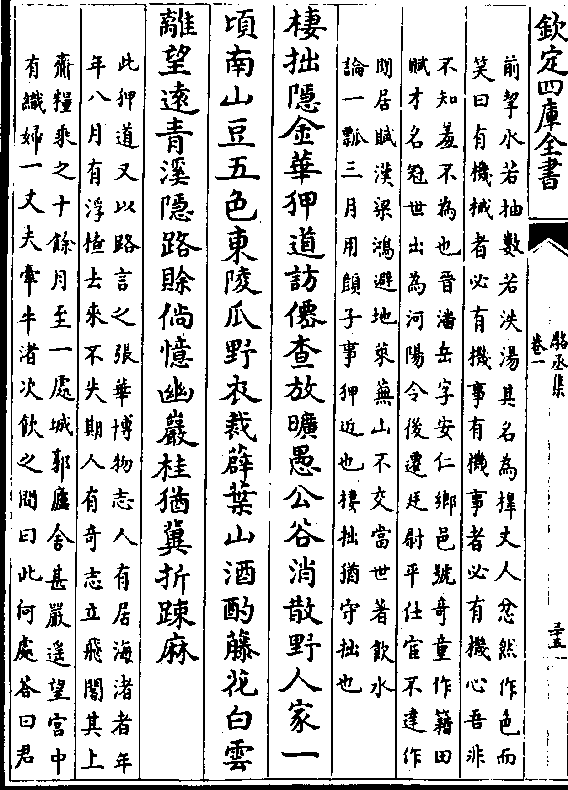 欽定四庫全書
駱丞集
卷一
前挈水若抽數若泆湯其名為橰丈人忿然作色而
笑曰有機械者必有機事有機事者必有機心吾非
不知羞不為也晉潘岳字安仁鄉邑號奇童作籍田
賦才名冠世出為河陽令後遷廷尉平仕宦不達作
閒居賦漢梁鴻避地萊蕪山不交當世著飲水
論一瓢三月用顔子事狎近也棲拙猶守拙也
棲拙隱金華狎道訪僊查放曠愚公谷消散野人家一
頃南山豆五色東陵瓜野衣裁薜葉山酒酌藤花白雲
離望遠青溪隱路賒倘憶幽巖桂猶冀折踈麻
此狎道又以路言之張華博物志人有居海渚者年
年八月有浮楂去來不失期人有奇志立飛閣其上
齎糧乘之十餘月至一處城郭廬舍甚嚴遙望宮中
有織婦一丈夫牽牛渚次飲之問曰此何處答曰君